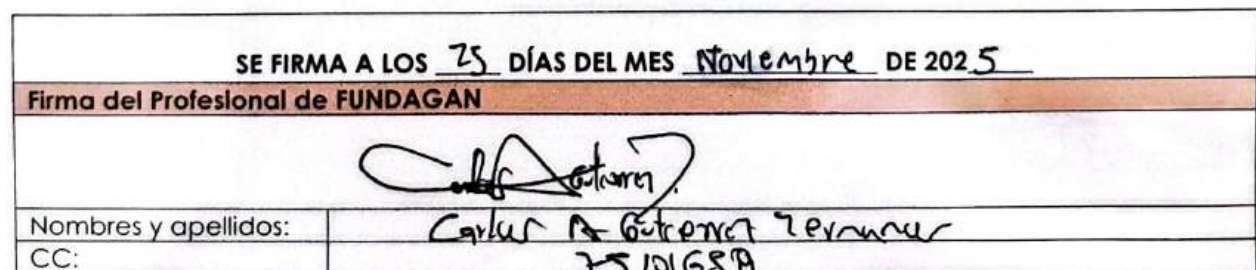 SE FIRMA A LOS 25 DÍAS DEL MES Noviembre DE 2025
Firma del Profesional de FUNDAGAN
Nombres y apellidos: Carlos A Gutierrez
CC: